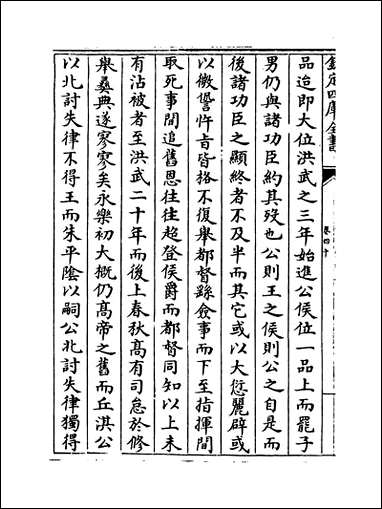 欽定四庫全書
卷四十
品迨即大位洪武之三年始進公侯位一品上而罷子
男仍與諸功臣約其歿也公則王之侯則公之自是而
後諸功臣之顯終者不及半而其它或以大愆麗辟或
以微舋忤旨皆格不復舉都督僉事而下至指揮間
取死事間追舊恩往往超登侯爵而都督同知以上未
有沾被者至洪武二十年而後上春秋高有司怠於修
舉彞典遂寥寥矣永樂初大概仍高帝之舊而丘淇公
以北討失律不得王而朱平陰以嗣公北討失律獨得